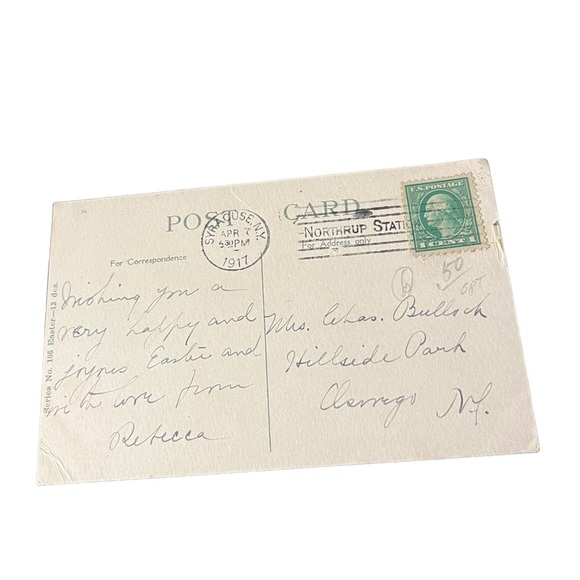 POST CARD
SYRACUSE, N.Y.
APR 7
5 30 PM
1917
NORTHRUP STATI
U.S. POSTAGE
1 CENT 1
For Correspondence
For Address only
.50
Wishing you a
very happy and
joyous Easter and
with love from
Rebecca
Mrs. Chas. Bullock
Hillside Park
Oswego N.Y.
Series No. 105 Easter—12 des.